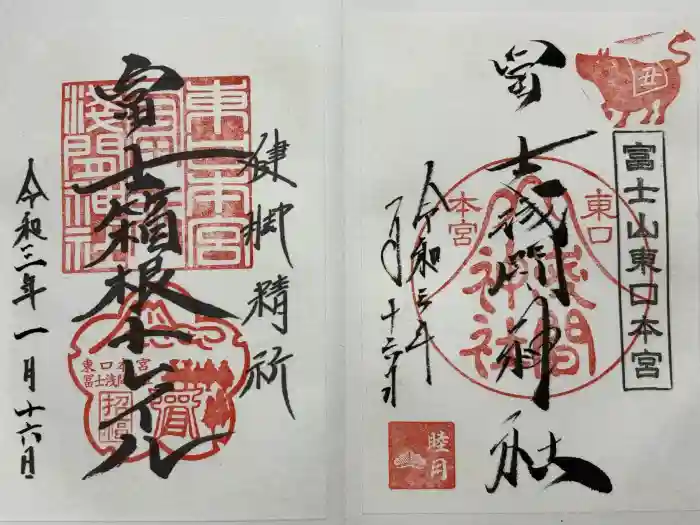 丑
富士山東口本宮
富士浅間神社
東口
本宮
浅間
神社
令和三年
一月十六日
睦月
健脚精祈
富士箱根トレイル
東口本宮
淺間神社
東口本宮
招福
令和三年一月十六日